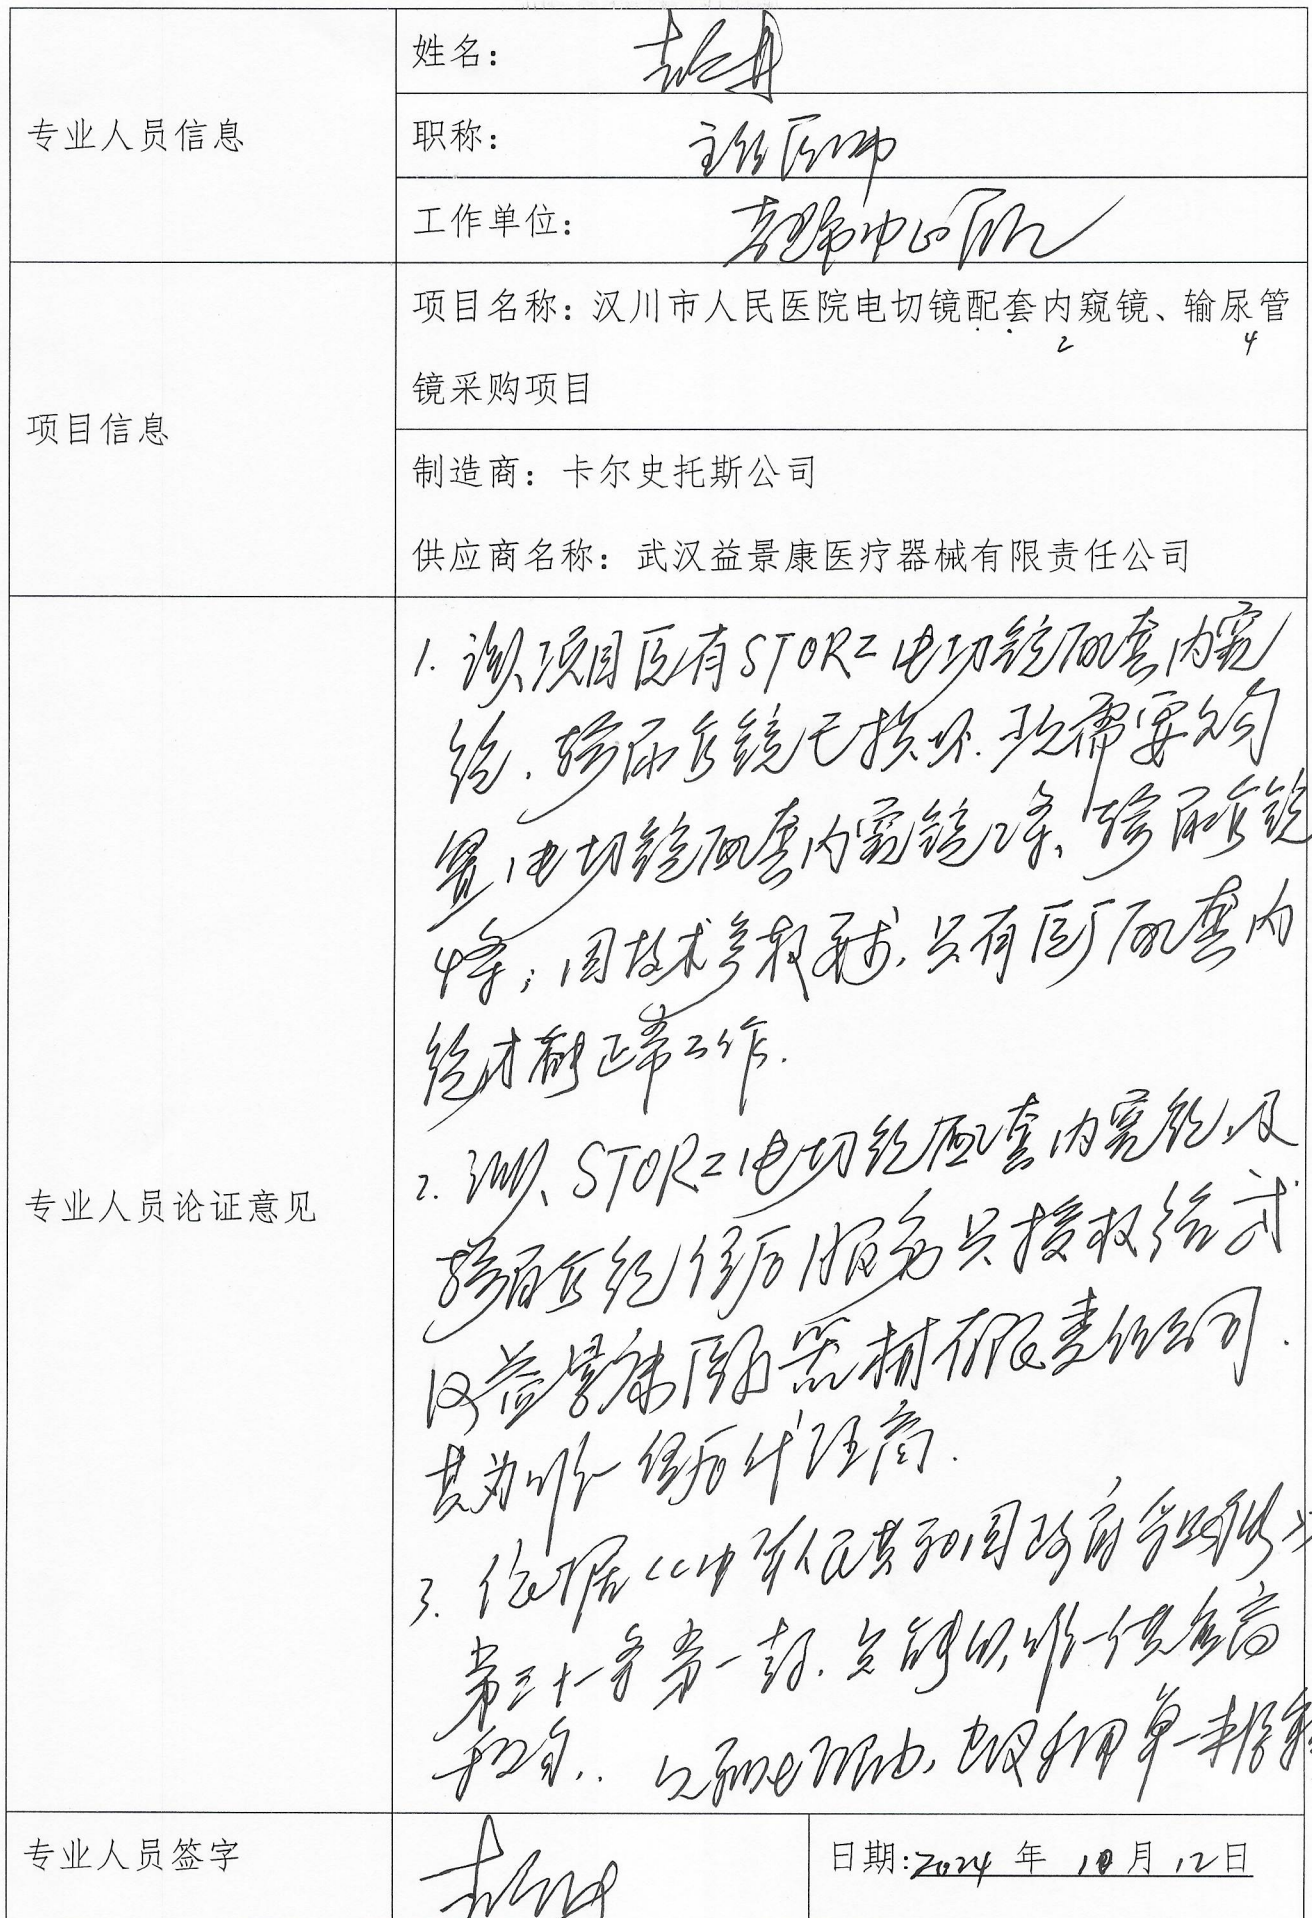 专业人员信息
姓名：
职称： 主任医师
工作单位： 孝感市中心医院
项目信息
项目名称：汉川市人民医院电切镜配套内窥镜、输尿管
2 4
镜采购项目
制造商：卡尔史托斯公司
供应商名称：武汉益景康医疗器械有限责任公司
专业人员论证意见
1. 该项目原有STORZ电切镜配套内窥
镜、输尿管镜已损坏.现需要购
置电切镜配套内窥镜2条、输尿管镜
4条；因技术参数要求,只有原厂配套内
镜才能正常工作.
2. 该STORZ电切镜配套内窥镜及
输尿管镜售后服务只授权给武
汉益景康医疗器械有限责任公司.
其为唯一售后代理商.
3. 依据《中华人民共和国政府采购法》
第三十一条第一款.只能从唯一供应商
采购.. 建议采用单一来源采
专业人员签字
日期:2024 年 10 月 12 日